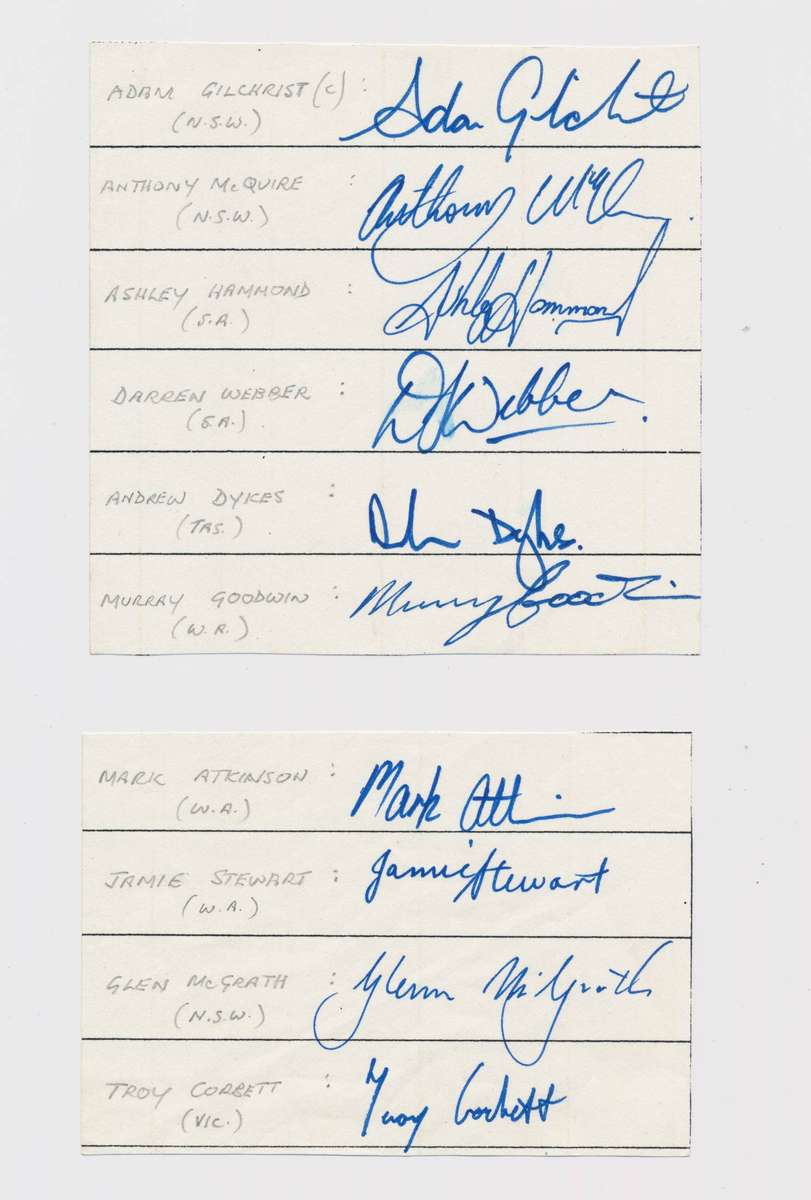 ADAM GILCHRIST (C) : Adam Gilchrist
(N.S.W.)
ANTHONY McQUIRE : Anthony McQ
(N.S.W.)
ASHLEY HAMMOND : Ashley Hammond
(S.A.)
DARREN WEBBER : D Webber.
(S.A.)
ANDREW DYKES : Dykes.
(TAS.)
MURRAY GOODWIN : Murray Goodwin
(W.A.)
MARK ATKINSON : Mark Atkinson
(W.A.)
JAMIE STEWART : Jamie Stewart
(W.A.)
GLEN McGRATH : Glenn McGrath
(N.S.W.)
TROY CORBETT : Troy Corbett
(VIC.)